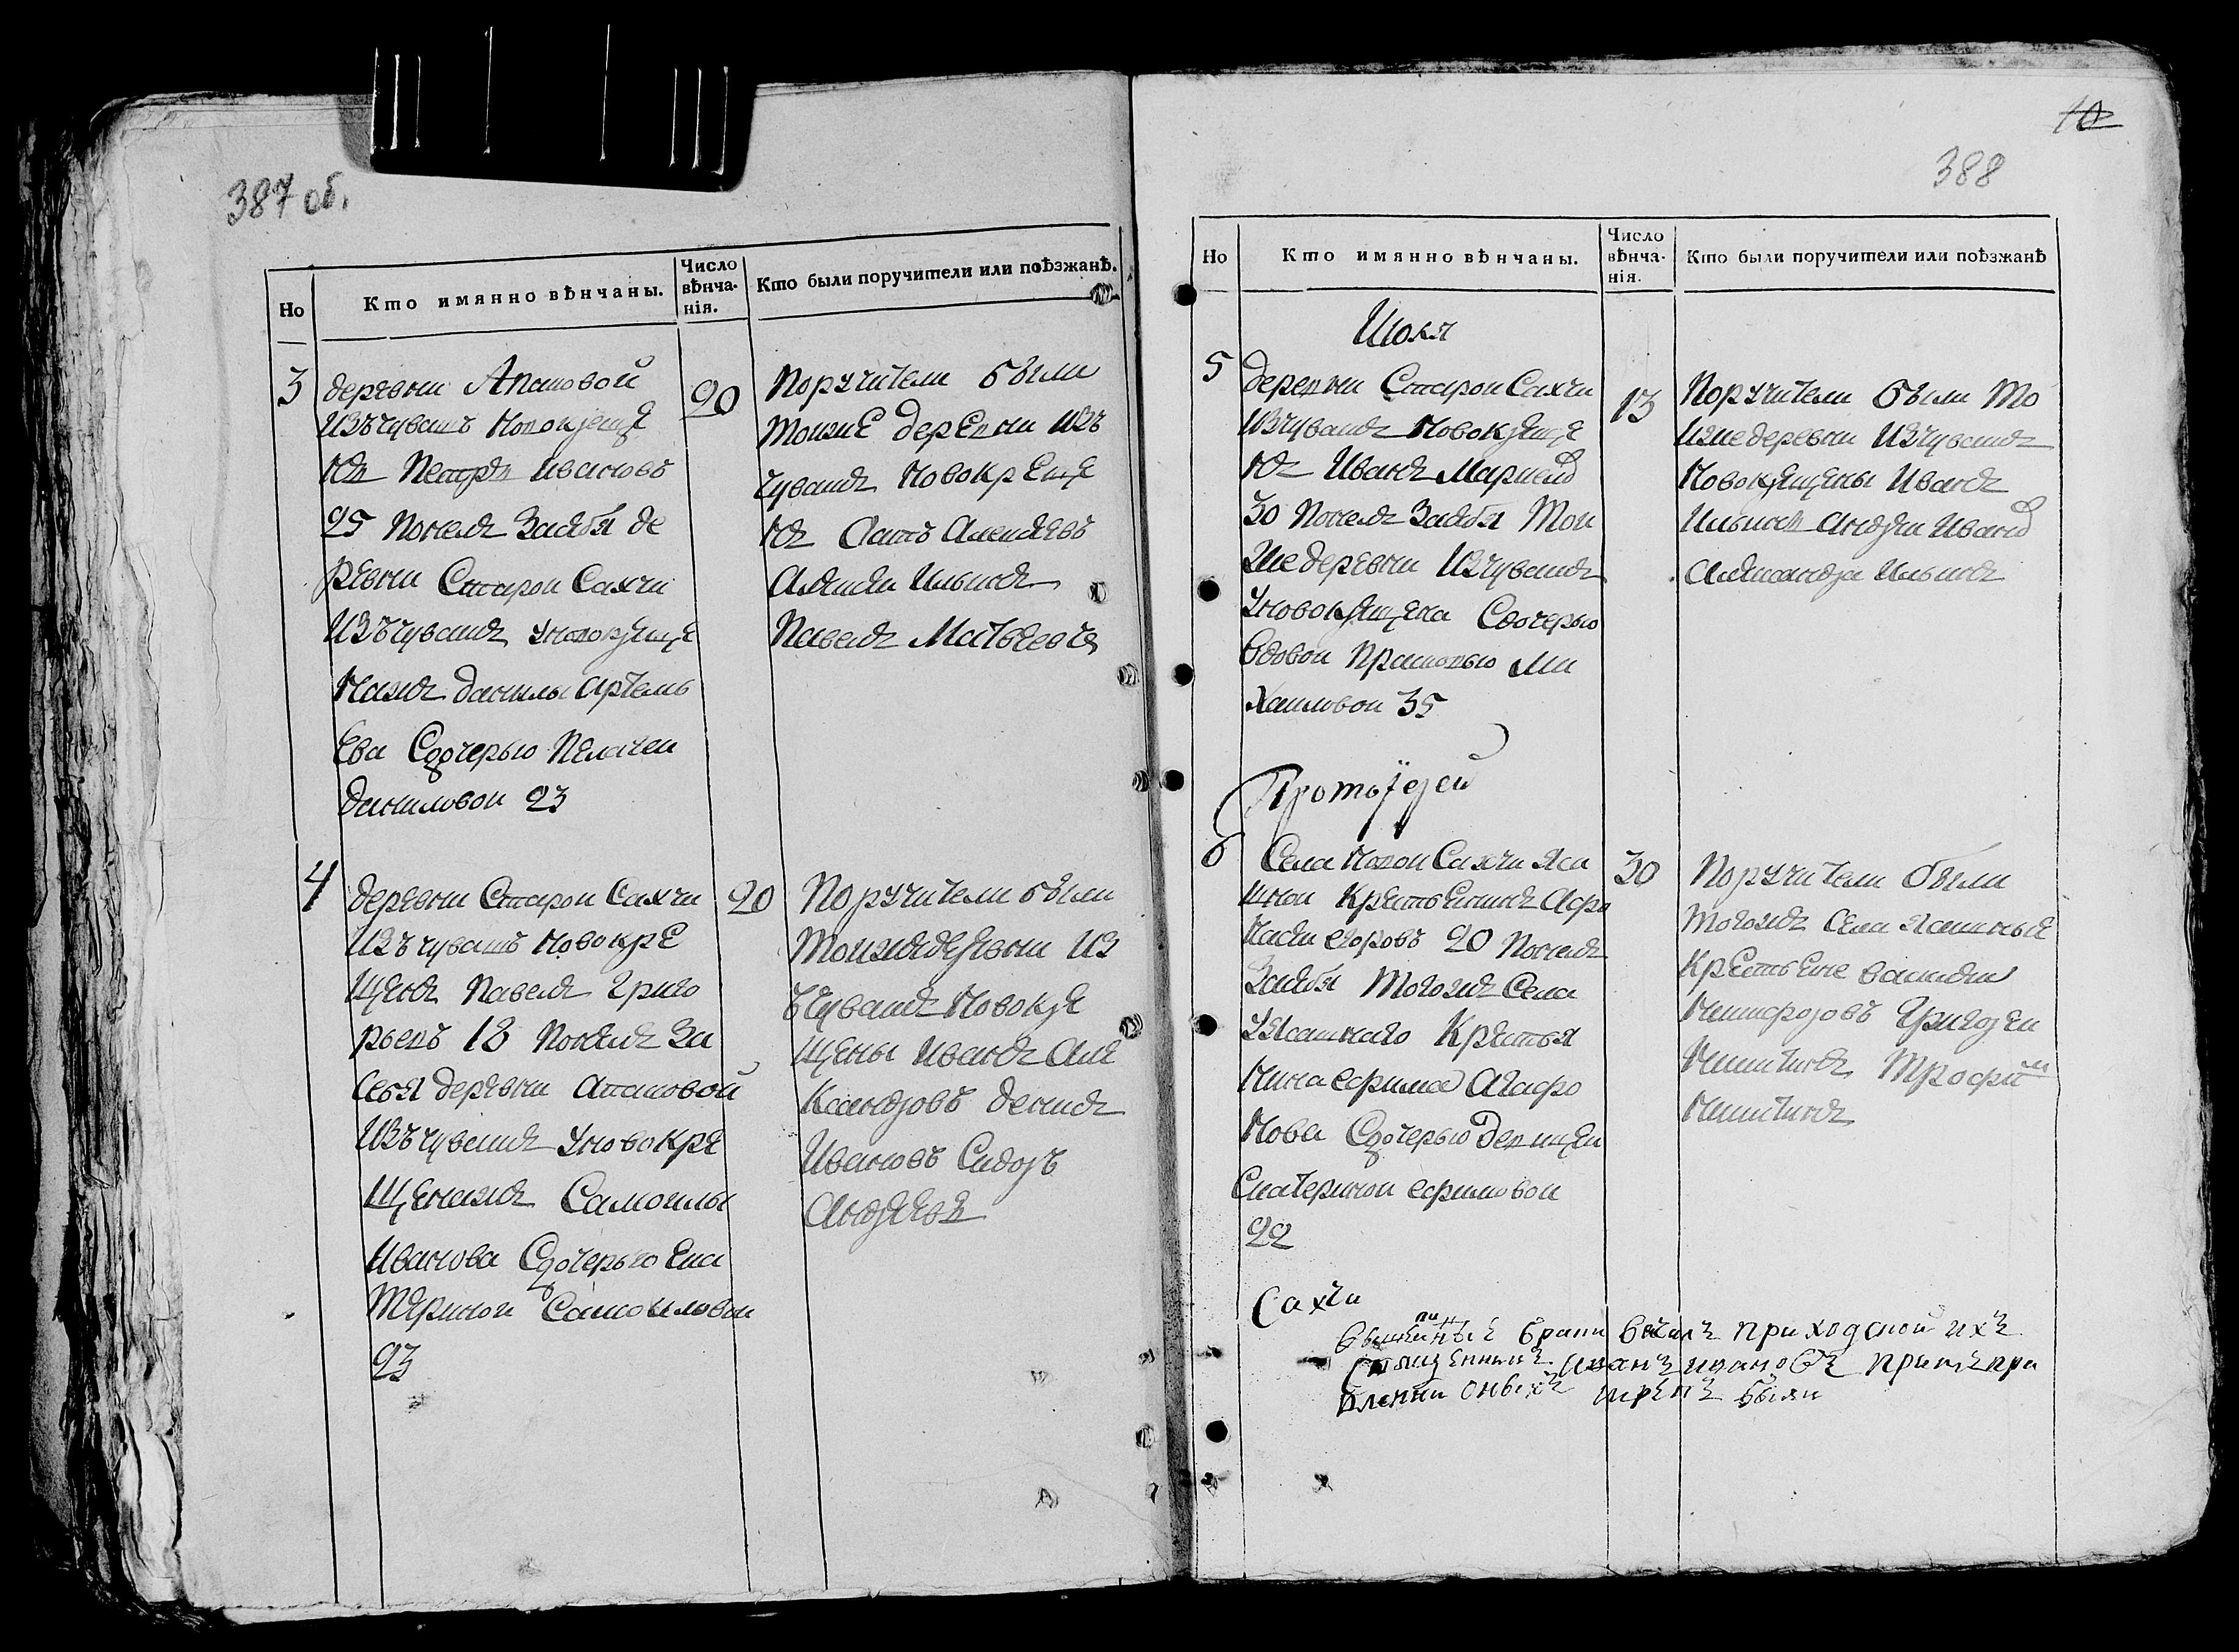 387 об.
Но
Кто имянно вѣнчаны.
Число вѣнча-нія.
Кто были поручители или поѣзжанѣ.
3
деревни Апановой
изъ чувашъ новокреще
нъ Петръ Ивановъ
25 понелъ засебя де
ревни Старои Сахчи
изъ чувашъ уновокреще
нажъ данилы Артемь
ева Сдочерью Пелагеи
даниловои 23
20
Поручители были
тоиже деревни изъ
чувашъ новокреще
нъ
Ильинъ
Павелъ Матвеевъ
4
деревни Старои Сахчи
изъ чувашъ новокре
щенъ Павелъ Григо
рьевъ 18 понелъ за
себя деревни Апановой
изъ чувашъ уновокре
щенажъ Самоилы
Иванова Сдочерью Ека
териной Самоиловои
23
20
Поручители были
тоижедеревни из
ъчувашъ новокре
щены Иванъ Але
ксандровъ денисъ
Ивановъ Сидоръ
Андреевъ
10
388
Но
Кто имянно вѣнчаны.
Число вѣнча-нія.
Кто были поручители или поѣзжанѣ
Июля
5
деревни Старои Сахчи
изчувашъ новокреще
нъ Иванъ
30 понелъ засебя Тои
жедеревни изчувашъ
уновокрещена Сдочерью
вдовои Прасковью Ми
хаиловои 35
13
Поручители были То
ижедеревни изчувашъ
новокрещены Иванъ
Ильинъ андреи Иванов
александра Ильинъ
Протоїерей
6
Села новои Сахчи яса
шнои крестьенинъ Афо
насеи егоровъ 20 понелъ
засебя тогожъ Села
уясашнаго крестья
нина ефима Агафо
нова Сдочерью девицеи
Екатеринои ефимовои
22
30
Поручители были
тогожъ Села ясашные
крестьене василеи
никифоровъ Григореи
никитинъ Трофим
никитинъ
Сахчи
браки приходской ихъ
Священникъ Иванъ Ивановъ
оныхъ были